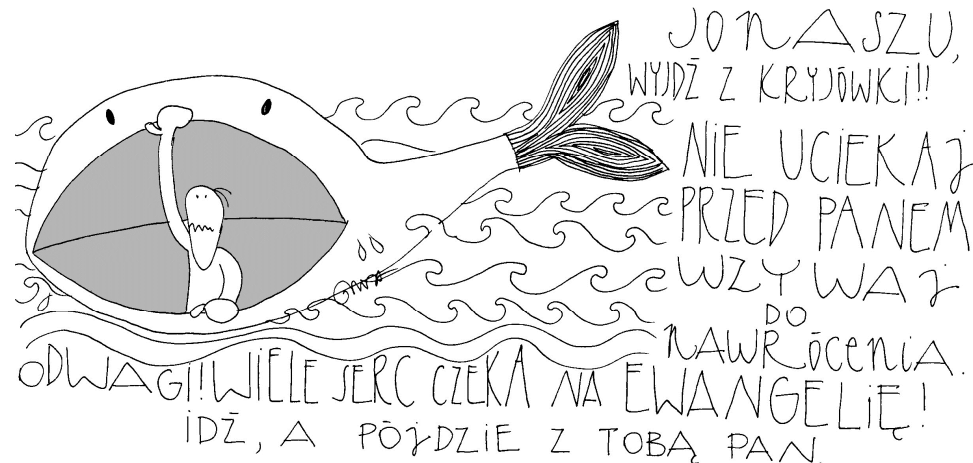 JONASZU,
WYJDŹ Z KRYJÓWKI!!
NIE UCIEKAJ
PRZED PANEM
WZYWAJ
DO
NAWRÓCENIA.
ODWAGI!! WIELE SERC CZEKA NA EWANGELIĘ!
IDŹ, A PÓJDZIE Z TOBĄ PAN.